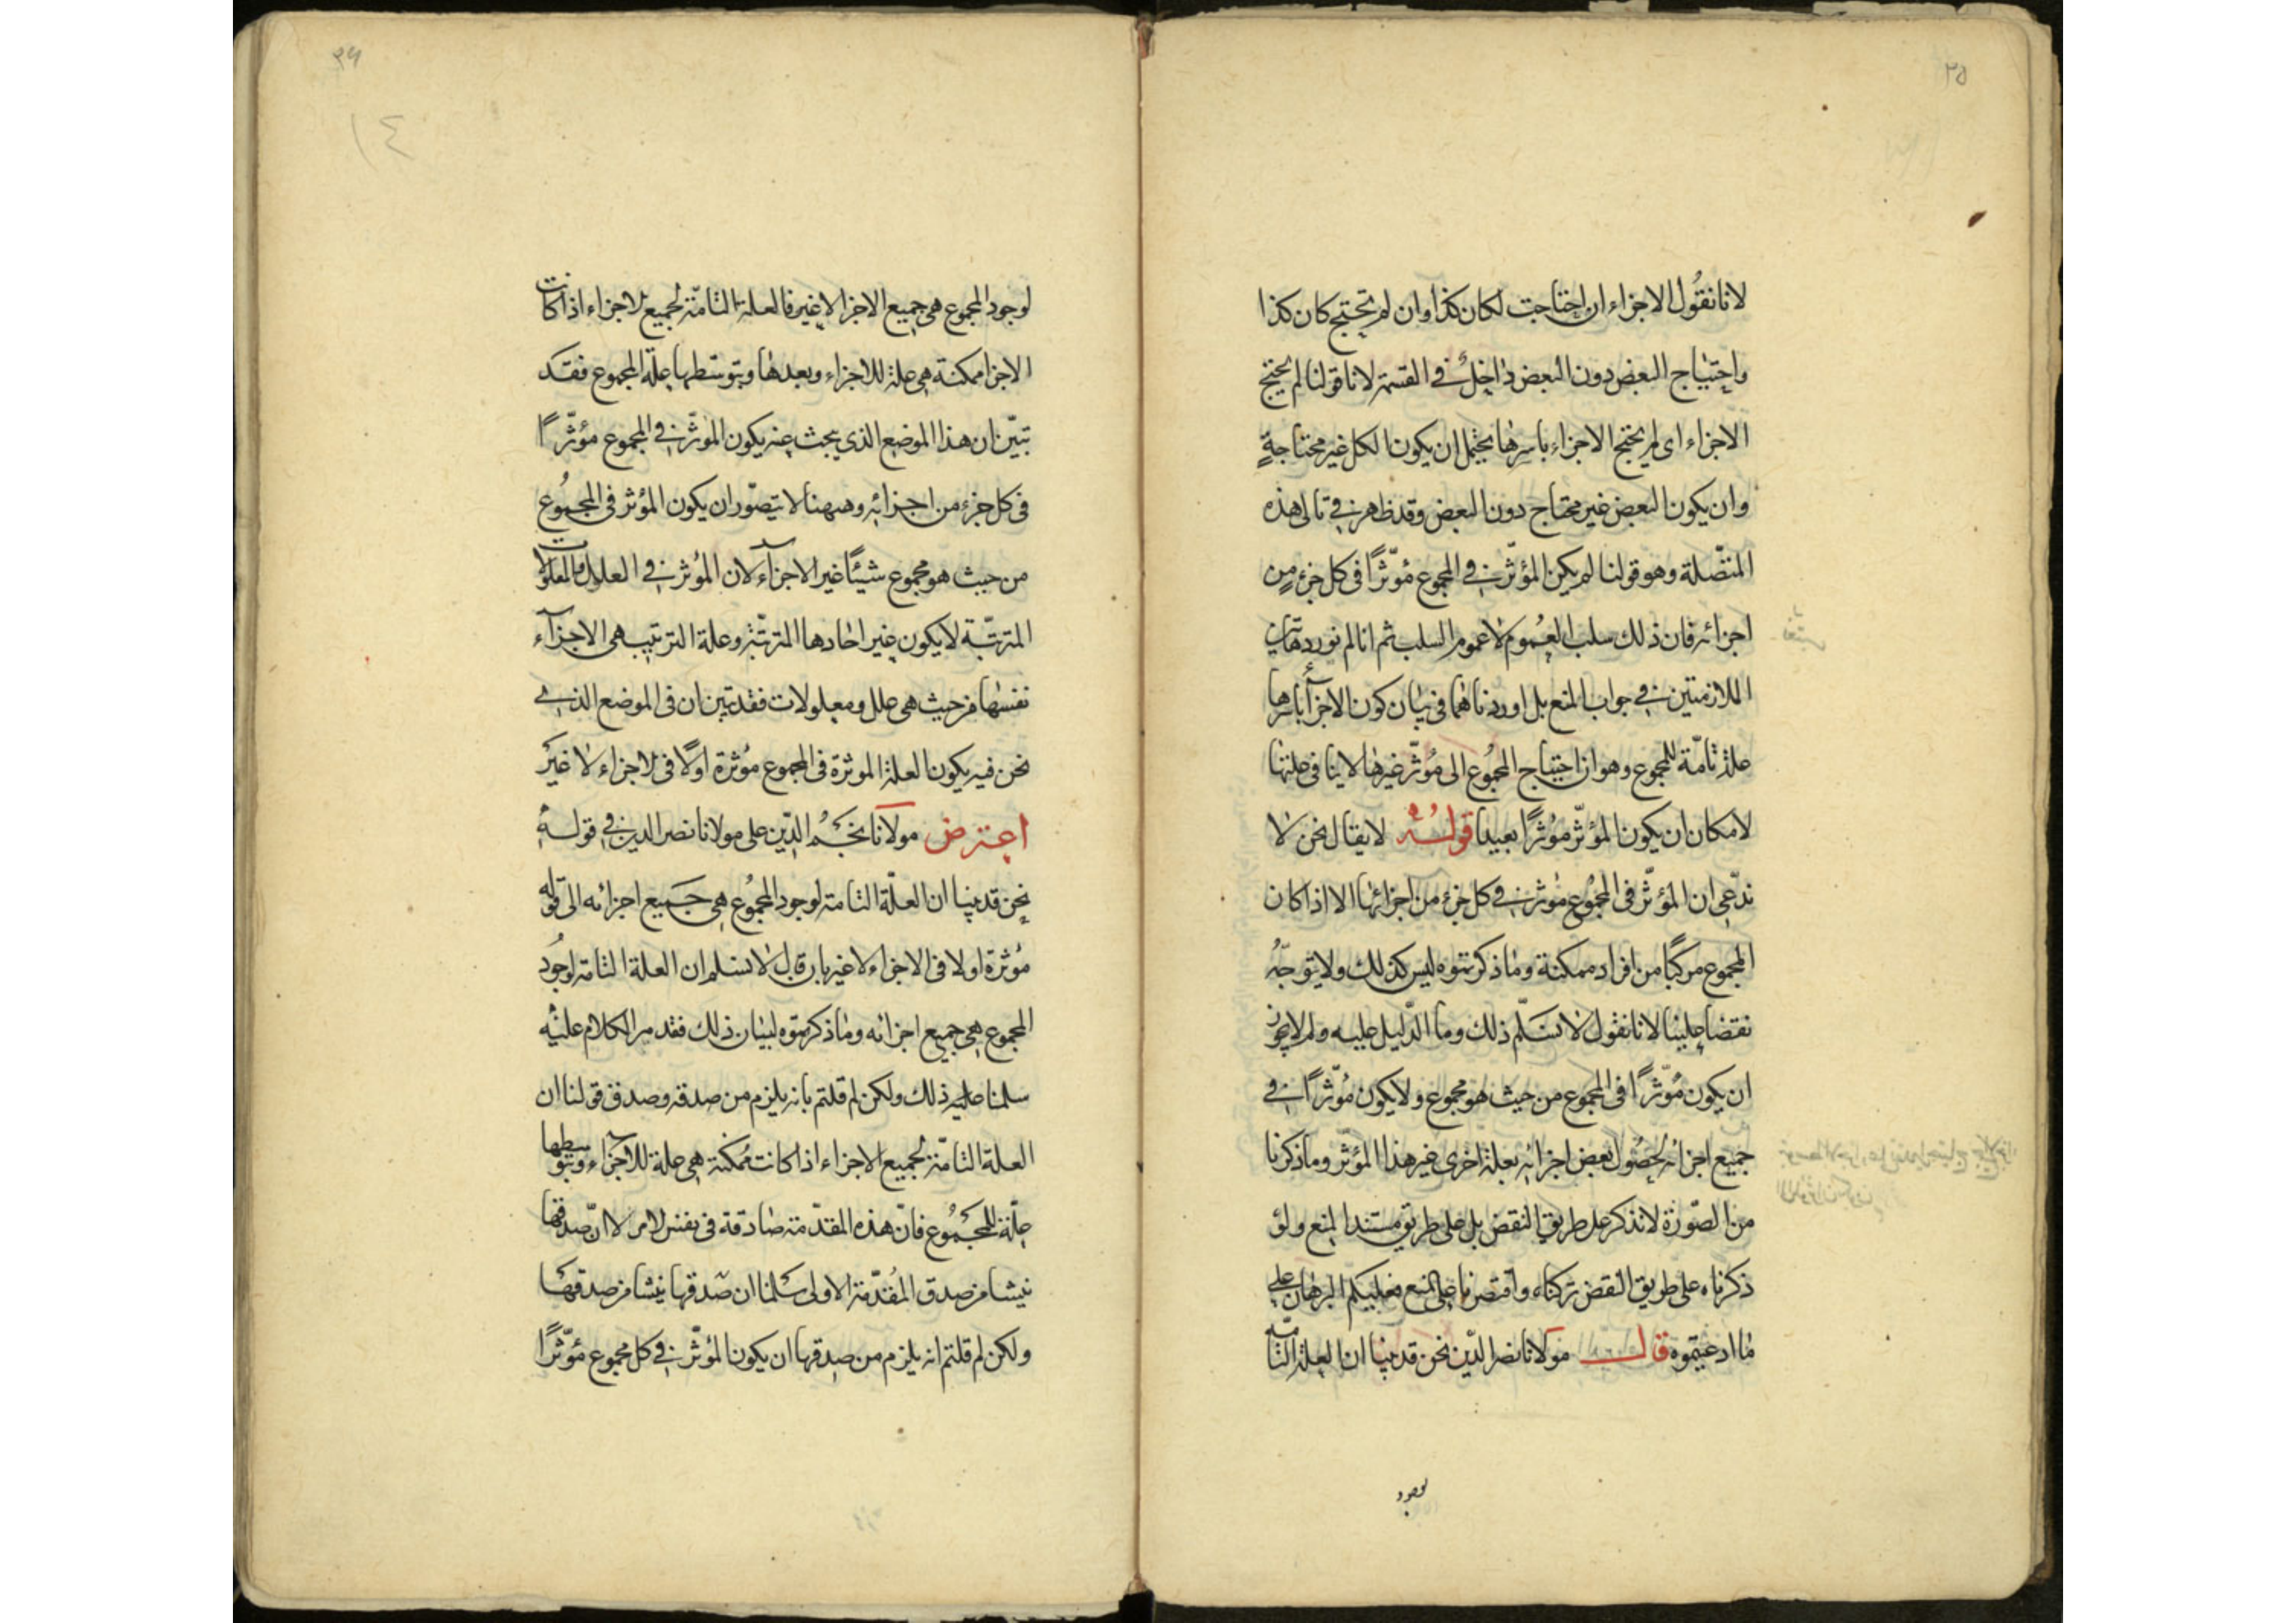 ٢٥
لانا نقول الاجزاء ان احتاجت لكان كذا وان لم تحتج كان كذا
واحتياج البعض دون البعض داخل في القسمة لانا قولنا لم يحتج
الاجزاء اى لم يحتج الاجزاء باسرها يحتمل ان يكون الكل غير محتاجة
وان يكون البعض غير محتاج دون البعض وقد ظهر في تالى هذه
المتصلة وهو قولنا لم يكن المؤثر في المجموع مؤثرًا فى كل جزء من
اجزائه فان ذلك سلب العموم لا عموم السلب ثم انا لم نورد هاتين
الملازمتين في جواب المنع بل اوردناهما فى بيان كون الاجزاء باسرها
علة تامة للمجموع وهو ان احتياج المجموع الى مؤثر غيرها لا ينافى علتها
لامكان ان يكون المؤثر مؤثرًا بعيدا قوله لا يقال نحن لا
ندعى ان المؤثر فى المجموع مؤثر في كل جزء من اجزائها الا اذا كان
المجموع مركبا من افراد ممكنة وما ذكرتموه ليس كذلك ولا يتوجه
نقضا علينا لانا نقول لا نسلم ذلك وما الدليل عليه ولم لا يجوز
ان يكون مؤثرًا فى المجموع من حيث هو مجموع ولا يكون مؤثرًا في
جميع اجزائه لحصول بعض اجزائه بعلة اخرى غير هذا المؤثر وما ذكرنا
من الصورة لا نذكر على طريق النقض بل على طريق مستند المنع ولو
ذكرناه على طريق النقض تركناه واقتصرنا على المنع فعليكم البرهان على
ما ادعيتموه قال مولانا نصر الدين نحن قد بينا ان العلة التامة
لوجود
٢٦
١٤
لوجود المجموع هى جميع الاجزا لا غير فالعلة التامة لجميع الاجزاء اذا كانت
الاجزا ممكنة هى علة للاجزاء وبعدها وبتوسطها علة المجموع فقد
تبين ان هذا الموضع الذي يبحث عنه يكون المؤثر في المجموع مؤثرًا
فى كل جزء من اجزائه وههنا لا يتصور ان يكون المؤثر فى المجموع
من حيث هو مجموع شيئًا غير الاجزاء لان المؤثر في العلل والمعلولات
المترتبة لا يكون غير احادها المترتبة وعلة الترتيب هى الاجزاء
نفسها من حيث هى علل ومعلولات فقد تبين ان فى الموضع الذي
نحن فيه يكون العلة الموثرة فى المجموع مؤثرة اولًا فى الاجزاء لا غير
اعترض مولانا نجم الدين على مولانا نصر الدين في قوله
نحن قد بينا ان العلة التامة لوجود المجموع هى جميع اجزائه الى قوله
مؤثرة اولا فى الاجزاء لا غير بان قال لا نسلم ان العلة التامة لوجود
المجموع هى جميع اجزائه وما ذكرتموه لبيان ذلك فقد مر الكلام عليه
سلمنا عليه ذلك ولكن لم قلتم بانه يلزم من صدقه وصدق قولنا ان
العلة التامة لجميع الاجزاء اذا كانت ممكنة هى علة للاجزاء وبتوسطها
علة للمجموع فان هذه المقدمة صادقة فى نفس الامر لا ان صدقها
ينشا من صدق المقدمة الاولى سلمنا ان صدقها ينشا من صدقها
ولكن لم قلتم انه يلزم من صدقها ان يكون المؤثر في كل مجموع مؤثرًا